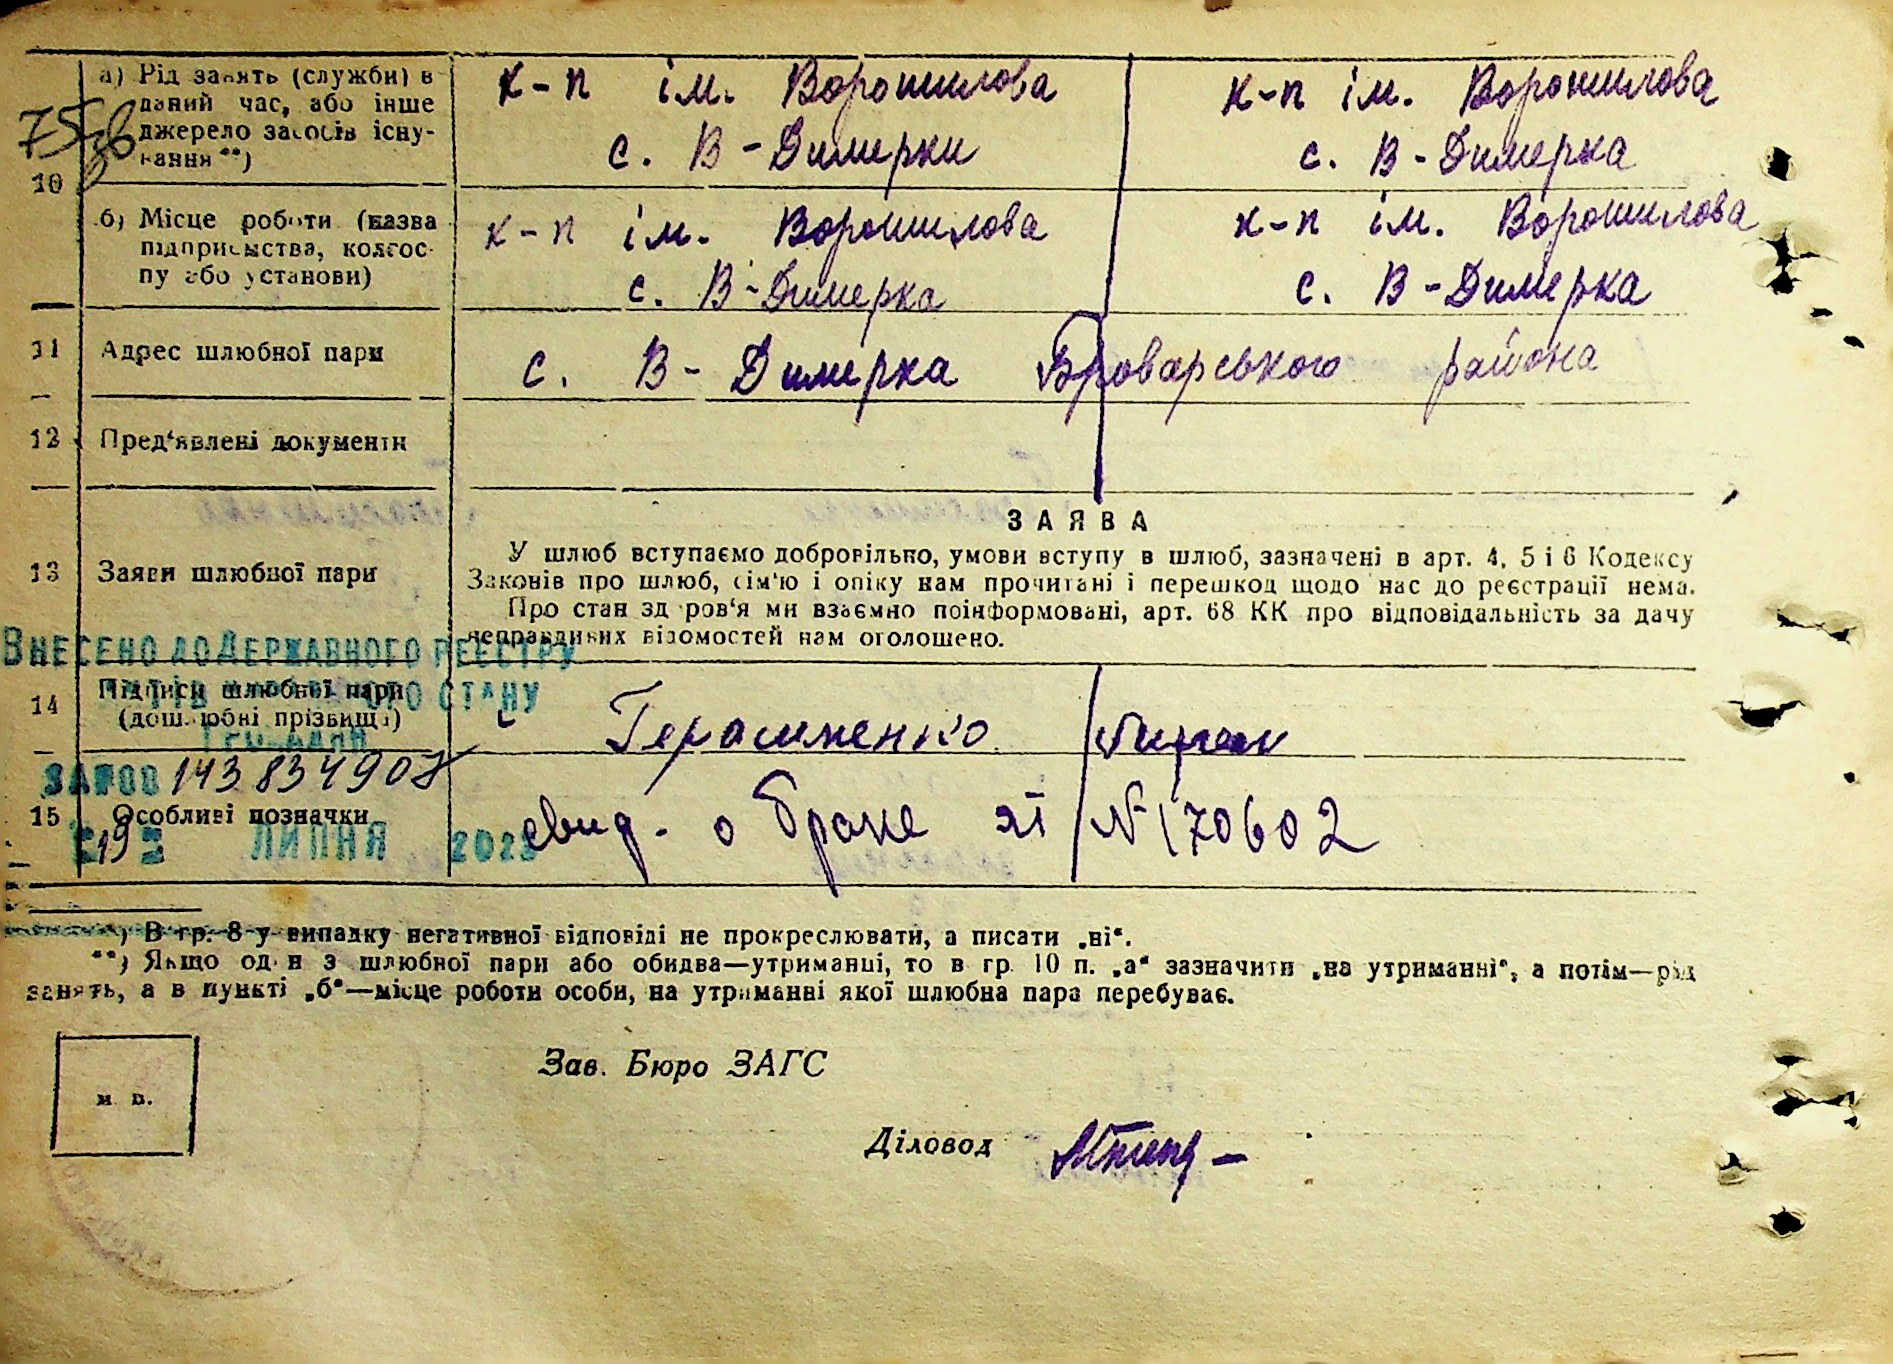 а) Рід занять (служби) в
даний час, або інше
джерело засобів існу-
вання **)
к-п ім. Ворошилова
с. В-Димерки
к-п ім. Ворошилова
с. В-Димерка
75зв
10
б) Місце роботи (назва
підприємства, колгос-
пу або установи)
к-п ім. Ворошилова
с. В-Димерка
к-п ім. Ворошилова
с. В-Димерка
11 Адрес шлюбної пари
с. В-Димерка Броварського района
12 Пред'явлені документи
ЗАЯВА
13 Заяви шлюбної пари
У шлюб вступаємо добровільно, умови вступу в шлюб, зазначені в арт. 4, 5 і 6 Кодексу
Законів про шлюб, сім'ю і опіку нам прочитані і перешкод щодо нас до реєстрації нема.
Про стан здоров'я ми взаємно поінформовані, арт. 68 КК про відповідальність за дачу
неправдивих відомостей нам оголошено.
ВНЕСЕНО ДО ДЕРЖАВНОГО РЕЄСТРУ
АКТІВ ЦИВІЛЬНОГО СТАНУ
ГРОМАДЯН
14 Підписи шлюбної пари
(дошлюбні прізвища)
Герасименко
ЗА №00143834907
15 Особливі позначки
свид. о браке № 170602
19 ЛИПНЯ 2023
*) В гр. 8 у випадку негативної відповіді не прокреслювати, а писати „ні“.
**) Якщо один з шлюбної пари або обидва—утриманці, то в гр. 10 п. „а“ зазначити „на утриманні“, а потім—рід
занять, а в пункті „б“—місце роботи особи, на утриманні якої шлюбна пара перебуває.
м. п.
Зав. Бюро ЗАГС
Діловод